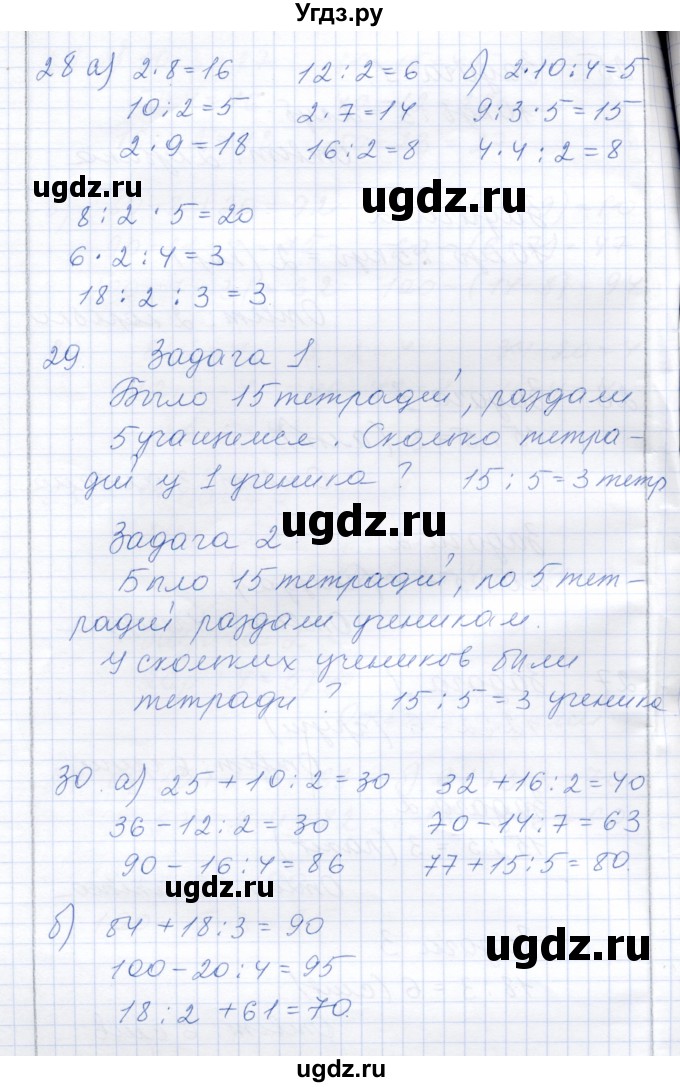 Угдз.ру
28 а) 2·8=16 12:2=6 б) 2·10:4=5
10:2=5 2·7=14 9:3·5=15
2·9=18 16:2=8 4·4:2=8
ugdz.ru ugdz.ru
8:2·5=20
6·2:4=3
18:2:3=3
29. Задача 1.
Было 15 тетрадей, раздали
5 учащемся. Сколько тетра-
дей у 1 ученика? 15:5=3 тетр
ugdz.ru
Задача 2
Было 15 тетрадей, по 5 тет-
радей раздали ученикам.
У скольких учеников были
тетради? 15:5=3 ученика
30. а) 25+10:2=30 32+16:2=40
36-12:2=30 70-14:7=63
90-16:4=86 77+15:5=80.
ugdz.ru
б) 84+18:3=90
ugdz.ru
100-20:4=95
18:2+61=70.
ugdz.ru